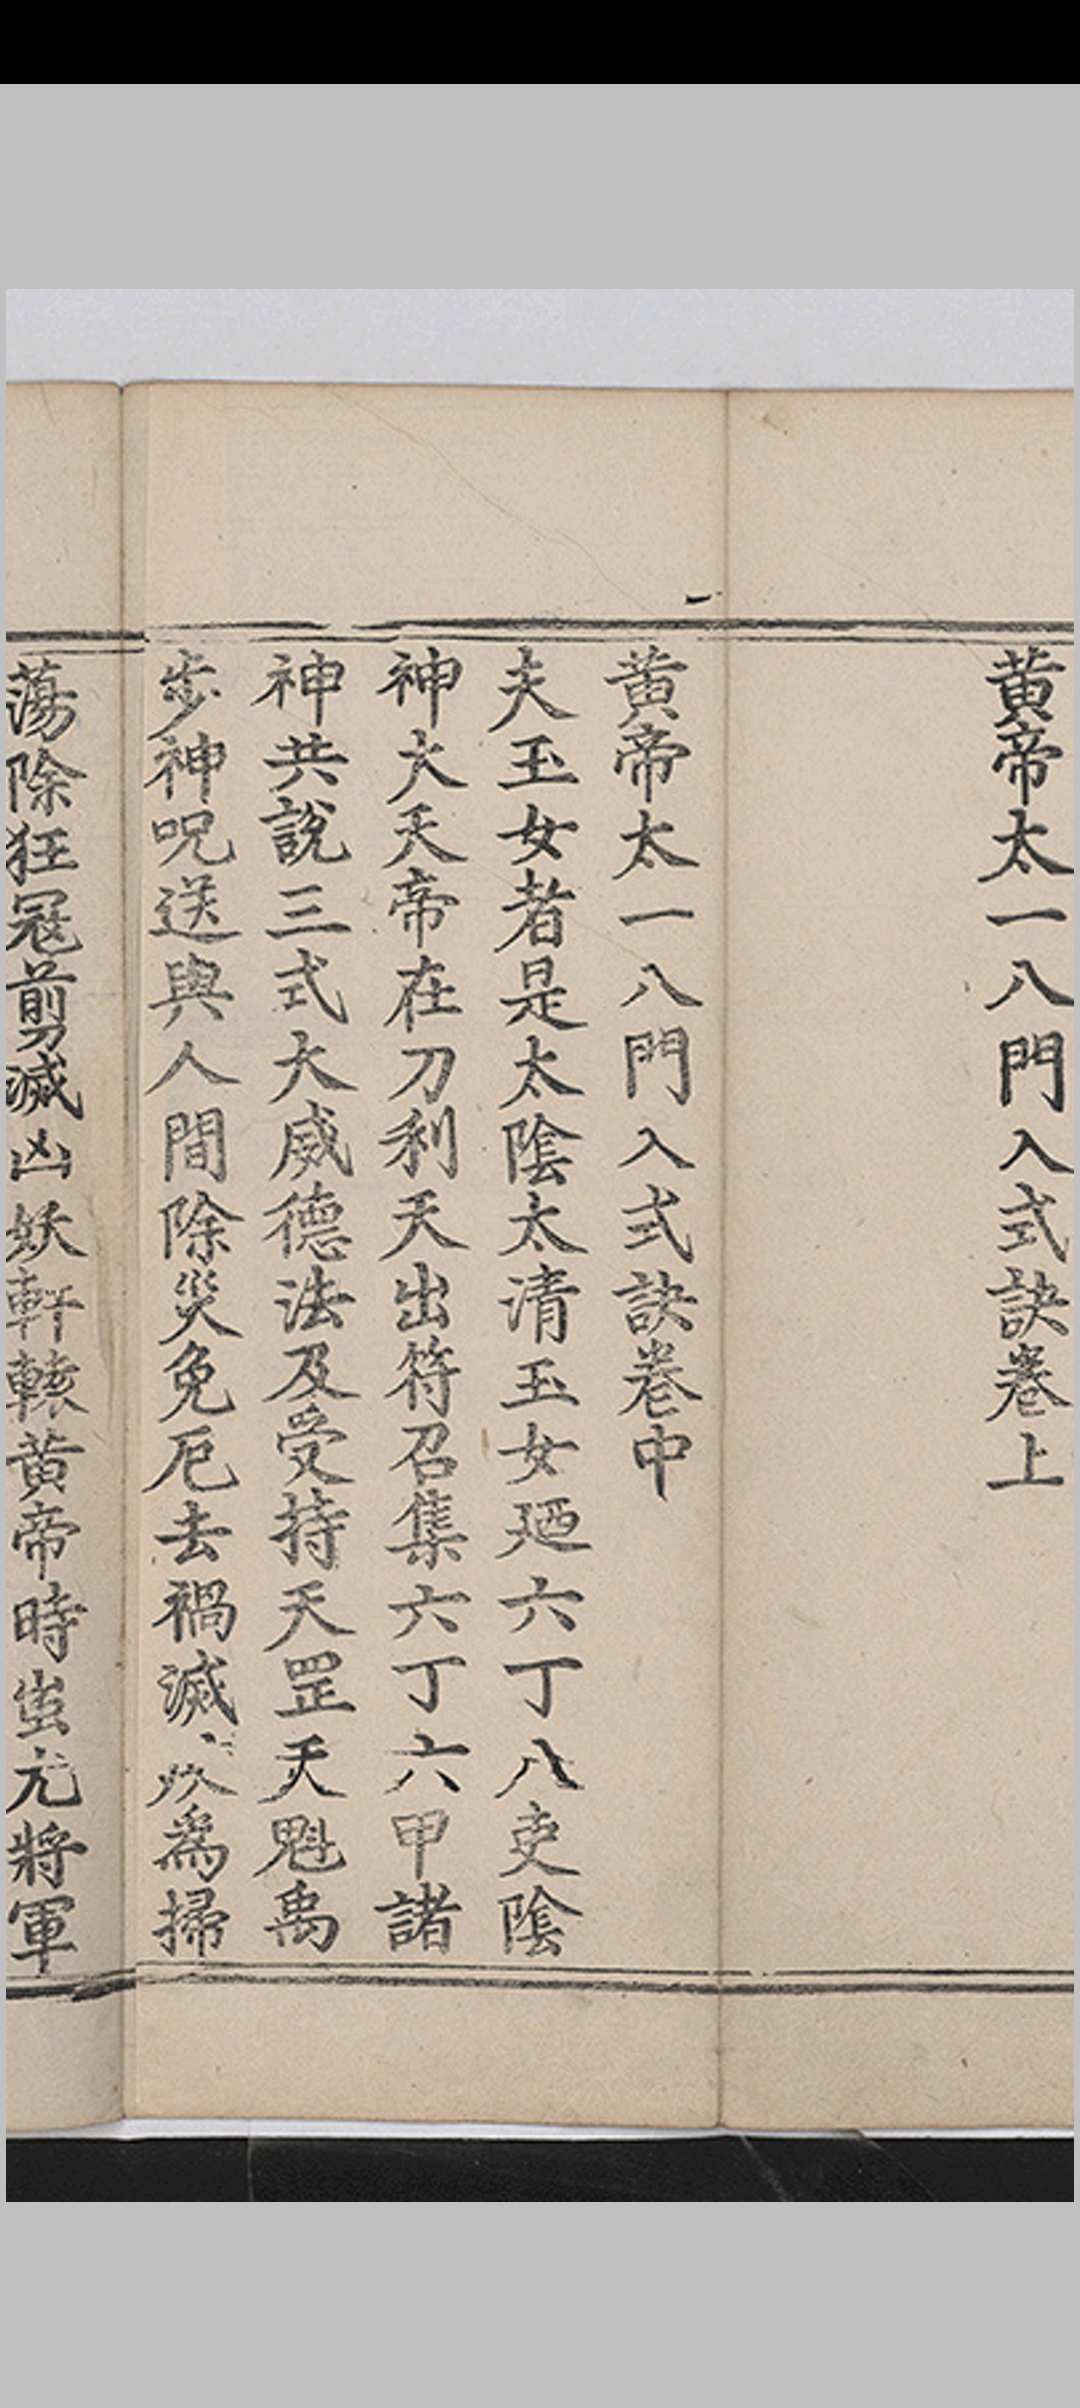 黄帝太一八門入式訣卷上
黄帝太一八門入式訣卷中
夫玉女者是太陰太清玉女廼六丁八吏陰
神大天帝在刀利天出符召集六丁六甲諸
神共說三式大威德法及受持天罡天魁禹
步神呪送與人間除災免厄去禍滅為掃
蕩除狂冦剪滅凶妖軒轅黄帝時蚩尤將軍